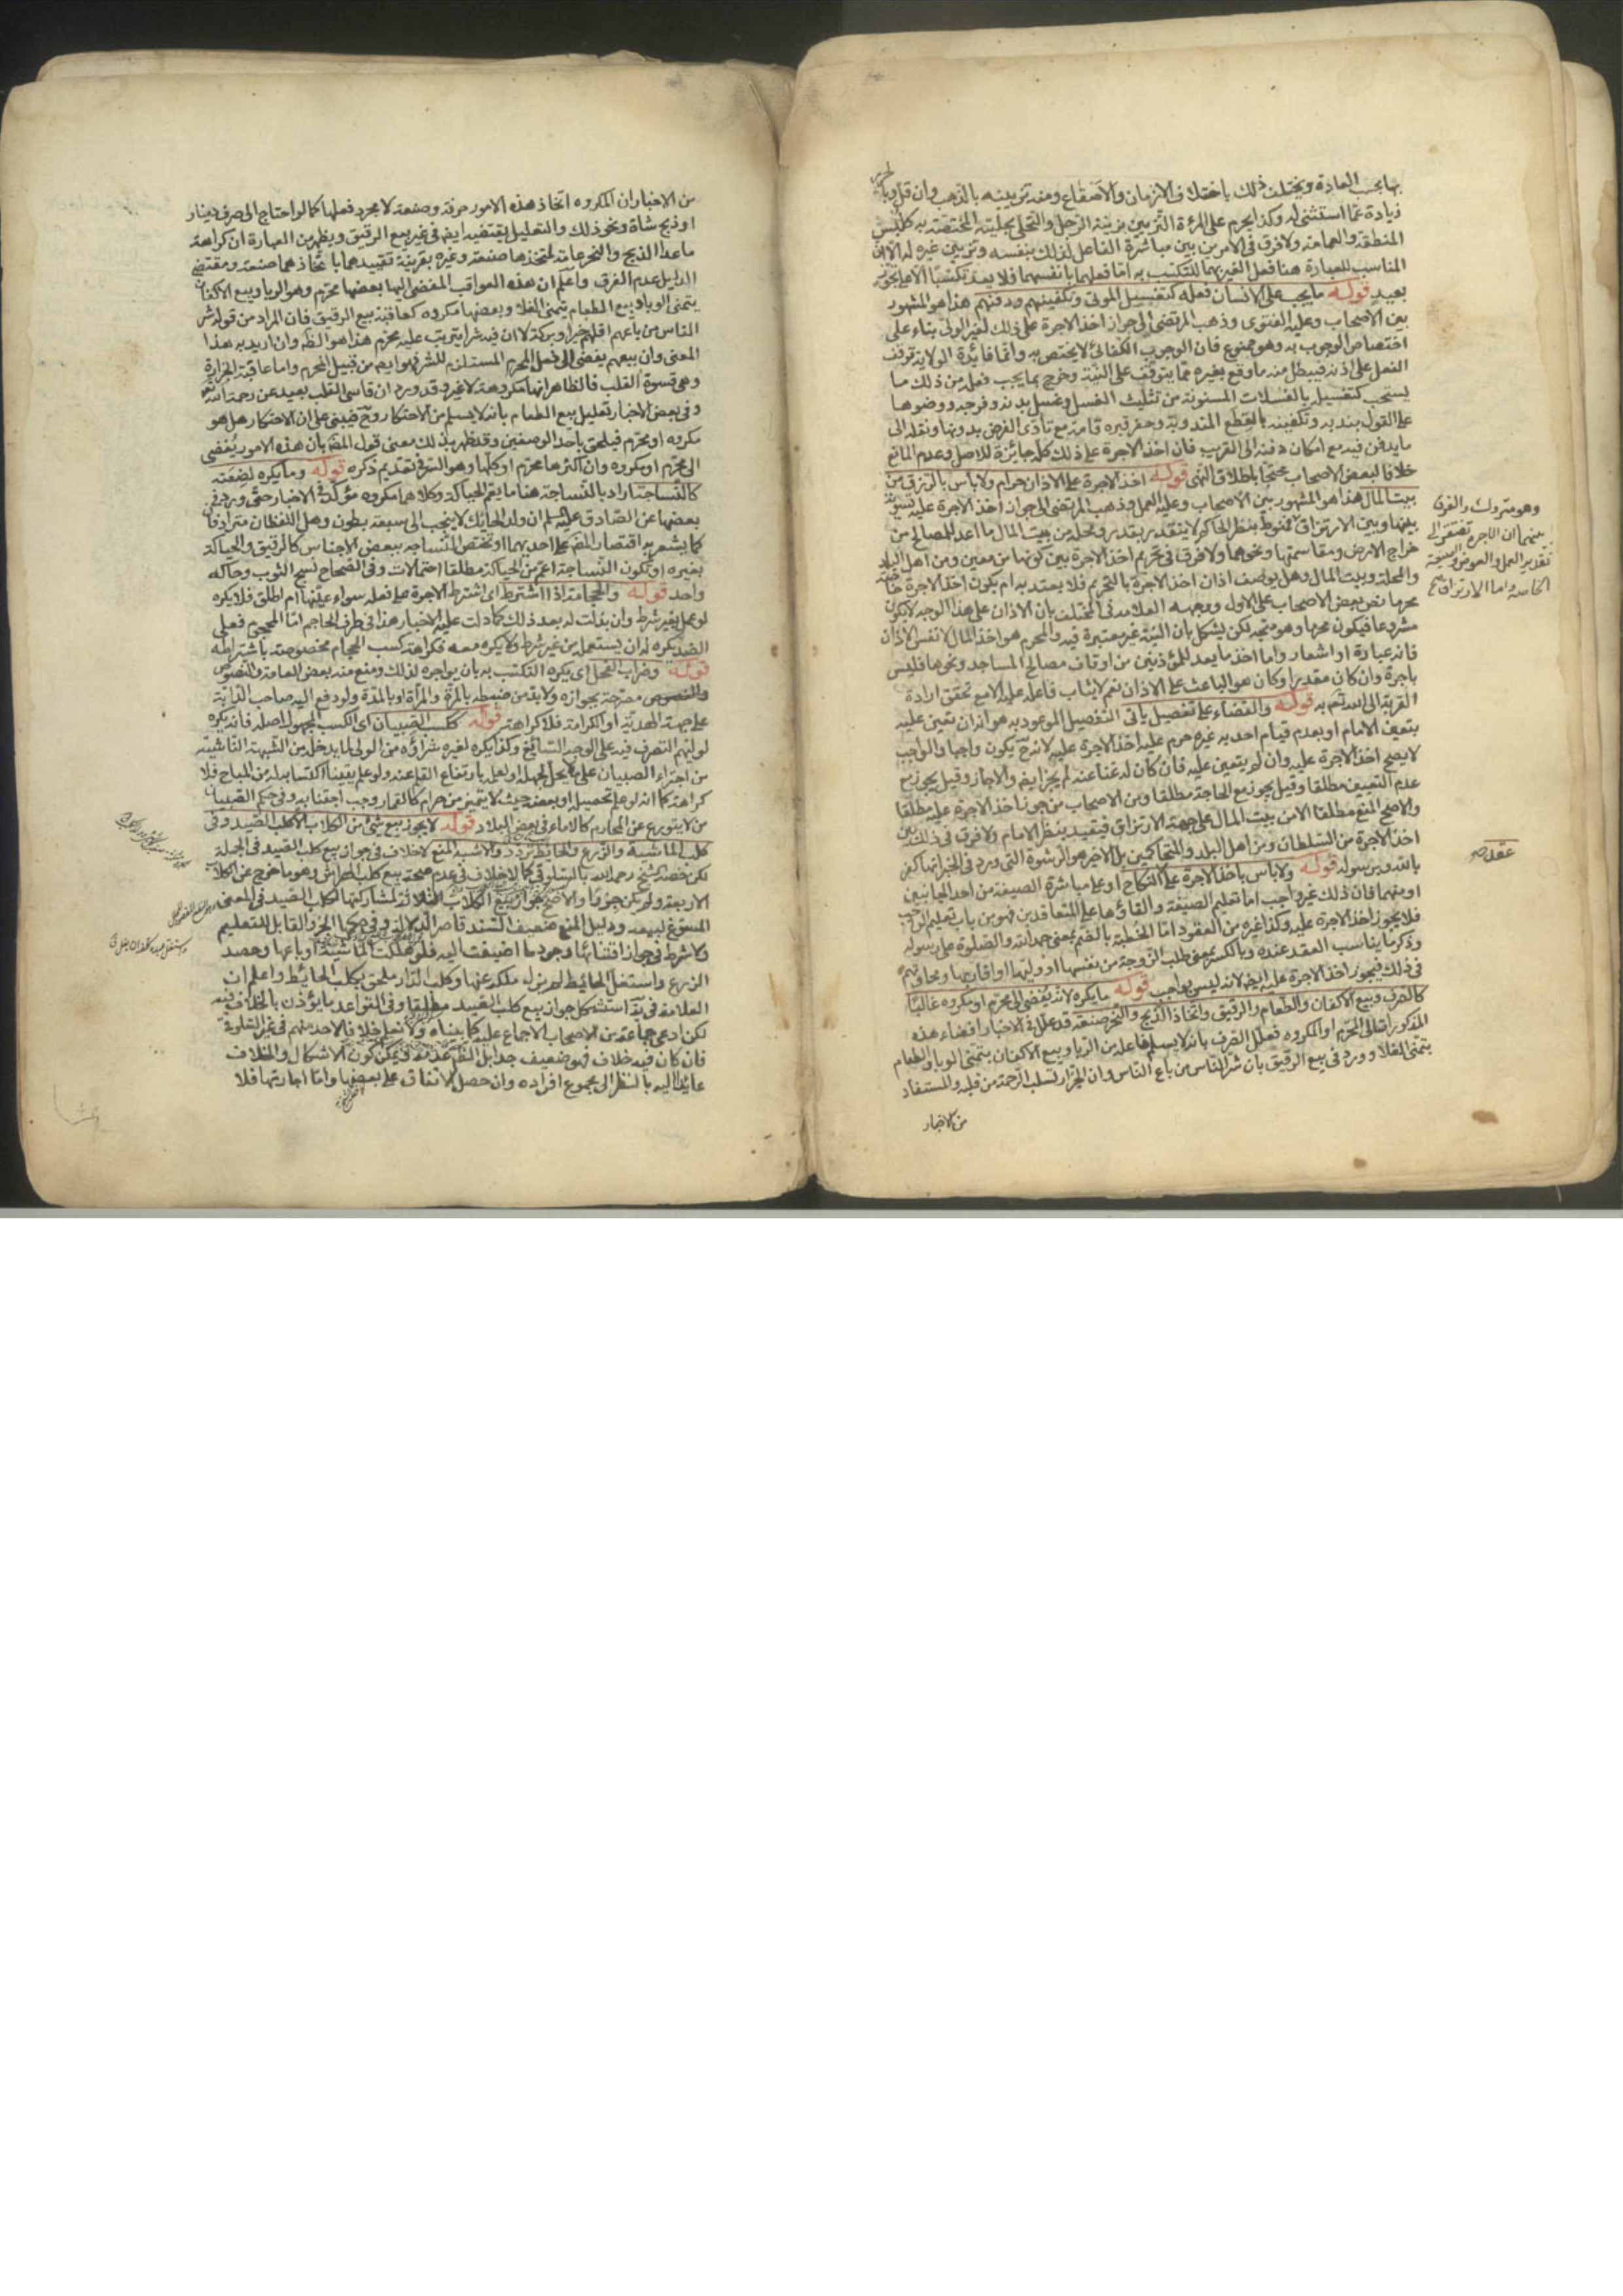 بها بحسب العادة ويختلف ذلك باختلاف الازمان والاصقاع ومنه تزيينه بالذهب وان قل وبالحرير
زيادة عما استثنى له وكذا يحرم على المرءة التزيين بزينة الرجل والتحلي بحليته المختصة به كلبس
المنطقة والعمامة ولا فرق في الامرين بين مباشرة الفاعل لذلك بنفسه وتزيين غيره له الا ان
المناسب للعبارة هنا فعل الغير بهما للتكسب به اما فعلهما بانفسهما فلا يعد تكسبا الا على تجوز
بعيد قوله ما يجب على الانسان فعله كتغسيل الموتى وتكفينهم ودفنهم هذا هو المشهور
بين الاصحاب وعليه الفتوى وذهب المرتضى الى جواز اخذ الاجرة على ذلك لغير الولي بناء على
اختصاص الوجوب به وهو ممنوع فان الوجوب الكفائي لا يختص به وانما فائدة الولاية توقف
الفعل على اذنه فيبطل منه ما وقع بغيره مما يتوقف على النية وخرج بما يجب فعله من ذلك ما
يستحب كتغسيله بالغسلات المسنونة من تثليث الغسل وغسل بدنه وفرجه ووضوها
على القول بندبه وتكفينه بالقطع المندوبة وحفر قبره قامة مع تأدى الفرض بدونها ونقله الى
ما يدفن فيه مع امكان دفنه الى القريب فان اخذ الاجرة على ذلك كله جائزة للاصل وعدم المانع
خلافا لبعض الاصحاب محتجا باطلاق النهى قوله اخذ الاجرة على الاذان حرام ولا بأس بالرزق من
بيت المال هذا هو المشهور بين الاصحاب وعليه العمل وذهب المرتضى الى جواز اخذ الاجرة عليه تسوية
بينها وبين الارتزاق منوط بنظر الحاكم لا يتقدر بقدر ومحله من بيت المال ما اعد للمصالح من
خراج الارض ومقاسمتها ونحوهما ولا فرق في تحريم اخذ الاجرة بين كونها من معين ومن اهل البلد
والمحلة وبيت المال وهل يوصف اذان اخذ الاجرة بالتحريم فلا يعتد به ام يكون اخذ الاجرة خاصة
محرما نص بعض الاصحاب على الاول ووجهه العلامة في المختلف بان الاذان على هذا الوجه لا يكون
مشروعا فيكون محرما وهو متجه لكن يشكل بان النية غير معتبرة فيه والمحرم هو اخذ المال لا نفس الاذان
فانه عبارة او اشعار واما اخذ ما يعد للمؤذنين من اوقاف مصالح المساجد ونحوها فليس
باجرة وان كان مقدرا وكان هو الباعث على الاذان نعم لا يثاب فاعله عليه الا مع تحقق ارادة
القربة الى الله تعم به قوله والقضاء على تفصيل ياتى التفصيل الموعود به هو انه ان تعين عليه
بتعيين الامام او بعدم قيام احد به غيره حرم عليه اخذ الاجرة عليه لانه ح يكون واجبا والواجب
لا يصح اخذ الاجرة عليه وان لم يتعين عليه فان كان له غنا عنه لم يجز ايض والا جاز وقيل يجوز مع
عدم التعيين مطلقا وقيل يجوز مع الحاجة مطلقا ومن الاصحاب من جوز اخذ الاجرة عليه مطلقا
والاصح المنع مطلقا الا من بيت المال على جهة الارتزاق فيتقيد بنظر الامام ولا فرق في ذلك بين
اخذ الاجرة من السلطان ومن اهل البلد والمتحاكمين بل الاخير هو الرشوة التي ورد في الخبر انها كفر
بالله وبرسوله قوله ولا باس باخذ الاجرة على النكاح او على مباشرة الصيغة من احد الجانبين
او منهما فان ذلك غير واجب اما تعليم الصيغة والقاؤها على المتعاقدين فهو من باب تعليم الواجب
فلا يجوز اخذ الاجرة عليه وكذا غيره من العقود اما الخطبة بالضم بمعنى حمد الله والصلوة على رسوله
وذكر ما يناسب العقد عنده وبالكسر بمعنى طلب الزوجة من نفسها او وليها او اقاربها ومحاورتهم
في ذلك فيجوز اخذ الاجرة عليه ايض لانه ليس بواجب قوله ما يكره لانه يفضى الى محرم او مكروه غالبا
كالصرف وبيع الاكفان والطعام والرقيق واتخاذ الذبح والنحر صنعة قد علل في الاخبار افضاء هذه
المذكورات الى المحرم او المكروه فعلل الصرف بانه لا يسلم فاعله من الربا وبيع الاكفان بتمنى الوبا والطعام
بتمنى الغلا وورد في بيع الرقيق بان شر الناس من باع الناس وان الجزار تسلب الرحمة من قلبه والمستفاد
من الاخبار
وهو متروك والفرق
بينهما ان الاجرة تفتقر الى
تقدير العمل والعوض والصيغة
الخاصة واما الارتزاق
عقد
من الاخبار ان المكروه اتخاذ هذه الامور حرفة وصنعة لا مجرد فعلها كما لو احتاج الى صرف دينار
او ذبح شاة ونحو ذلك والتعليل يقتضيه ايض في غير بيع الرقيق ويظهر من العبارة ان كراهة
ما عدا الذبح والنحر عامة لمتخذها صنعة وغيره بقرينة تقييدهما باتخاذهما صنعة ومقتضى
الدليل عدم الفرق واعلم ان هذه العواقب المفضى اليها بعضها محرم وهو الربا وبيع الاكفان
بتمنى الوبا وبيع الطعام بتمنى الغلا وبعضها مكروه كعاقبة بيع الرقيق فان المراد من قوله شر
الناس من باعهم اقلهم خيرا وبركة لا ان فيه شرا يترتب عليه محرم هذا هو الظ وان اريد به هذا
المعنى وان بيعهم يفضى الى فعل المحرم المستلزم للشر فهو ايض من قبيل المحرم واما عاقبة الجزارة
وهى قسوة القلب فالظاهر انها مكروهة لا غير وقد ورد ان قاسى القلب بعيد عن رحمة الله تع
وفي بعض الاخبار تعليل بيع الطعام بانه لا يسلم من الاحتكار وح فيبنى على ان الاحتكار هل هو
مكروه او محرم فيلحق باحد الوصفين وقد ظهر بذلك معنى قول المص بان هذه الامور يفضى
الى محرم او مكروه وان اكثرها محرم او كلها وهو السر في تقديم ذكره قوله وما يكره لضعته
كالنساجة اراد بالنساجة هنا ما يعم الحياكة وكلاهما مكروه مؤكد في الاخبار حتى ورد في
بعضها عن الصادق عليه السلم ان ولد الحائك لا ينجب الى سبعة بطون وهل اللفظان مترادفان
كما يشعر به اقتصار المص على احدهما او تختص النساجة ببعض الاجناس كالرقيق والحياكة
بغيره او تكون النساجة اعم من الحياكة مطلقا احتمالات وفي الصحاح نسج الثوب وحاكه
واحد قوله والحجامة اذا اشترط اى اشترط الاجرة على فعله سواء عينها ام اطلق فلا يكره
لو عمل بغير شرط وان بذلت له بعد ذلك كما دلت عليه الاخبار هذا في طرف الحاجم اما المحجوم فعلى
الضد يكره له ان يستعمله من غير شرط ولا يكره معه فكراهة كسب الحجام مخصوصة باشتراطه
قوله وضراب الفحل اى يكره التكسب به بان يواجره لذلك ومنع منه بعض العامة والنصوص
مصرحة بجوازه ولا بد من ضبطه بالمرة والمراة او بالمدة ولو دفع اليه صاحب الدابة
على جهة الهدية او الكرامة فلا كراهة قوله ككسب الصبيان اى الكسب المجهول اصله فانه يكره
لوليهم التصرف فيه على الوجه السائغ وكذا يكره لغيره شراؤه من الولى لما يدخله من الشبهة الناشئة
من اجتراء الصبيان على ما لا يحل لجهله او لعلمه بارتفاع القلم عنه ولو علم يقينا اكتسابه له من المباح فلا
كراهة كما انه لو علم تحصيله او بعضه حيث لا يتميز من حرام كالقمار وجب اجتنابه وفي حكم الصبيان
من لا يتورع عن المحارم كالاماء في بعض البلاد قوله لا يجوز بيع شئ من الكلاب الا كلب الصيد وفي
كلب الماشية والزرع والحائط تردد والاشبه المنع لا خلاف في جواز بيع كلب الصيد في الجملة
لكن خصه الشيخ رحمه الله بالسلوقي كما لا خلاف في عدم صحة بيع كلب الهراش وهو ما خرج عن الكلاب
الاربعة ولم يكن جروا والاصح جواز بيع الكلاب الثلاثة لمشاركتها لكلب الصيد في المعنى
المسوغ لبيعه ودليل المنع ضعيف السند قاصر الدلالة وفي حكمها الجرو القابل للتعليم
ولا شرط في جواز اقتنائها وجود ما اضيفت اليه فلو هلكت الماشية او باعها وحصد
الزرع واستغل الحائط لم يزل ملكه عنها وكلب الدار ملحق بكلب الحائط واعلم ان
العلامة في كره استشكل جواز بيع كلب الصيد مطلقا وفي القواعد ما يؤذن بالخلاف فيه
لكن ادعى جماعة من الاصحاب الاجماع عليه كما بيناه ولا نعلم خلافا لاحد منهم في غير السلوقي
فان كان فيه خلاف فهو ضعيف جدا بل الظ عدمه فيمكن كون الاشكال والخلاف
عائدا اليه بالنظر الى مجموع افراده وان حصل الاتفاق على بعضها واما اجارتها فلا